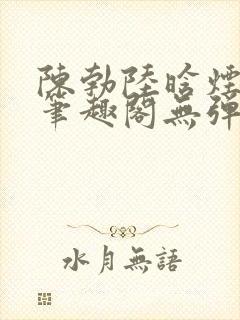 陳勃陸晗煙
筆趣閣無彈
水月無語